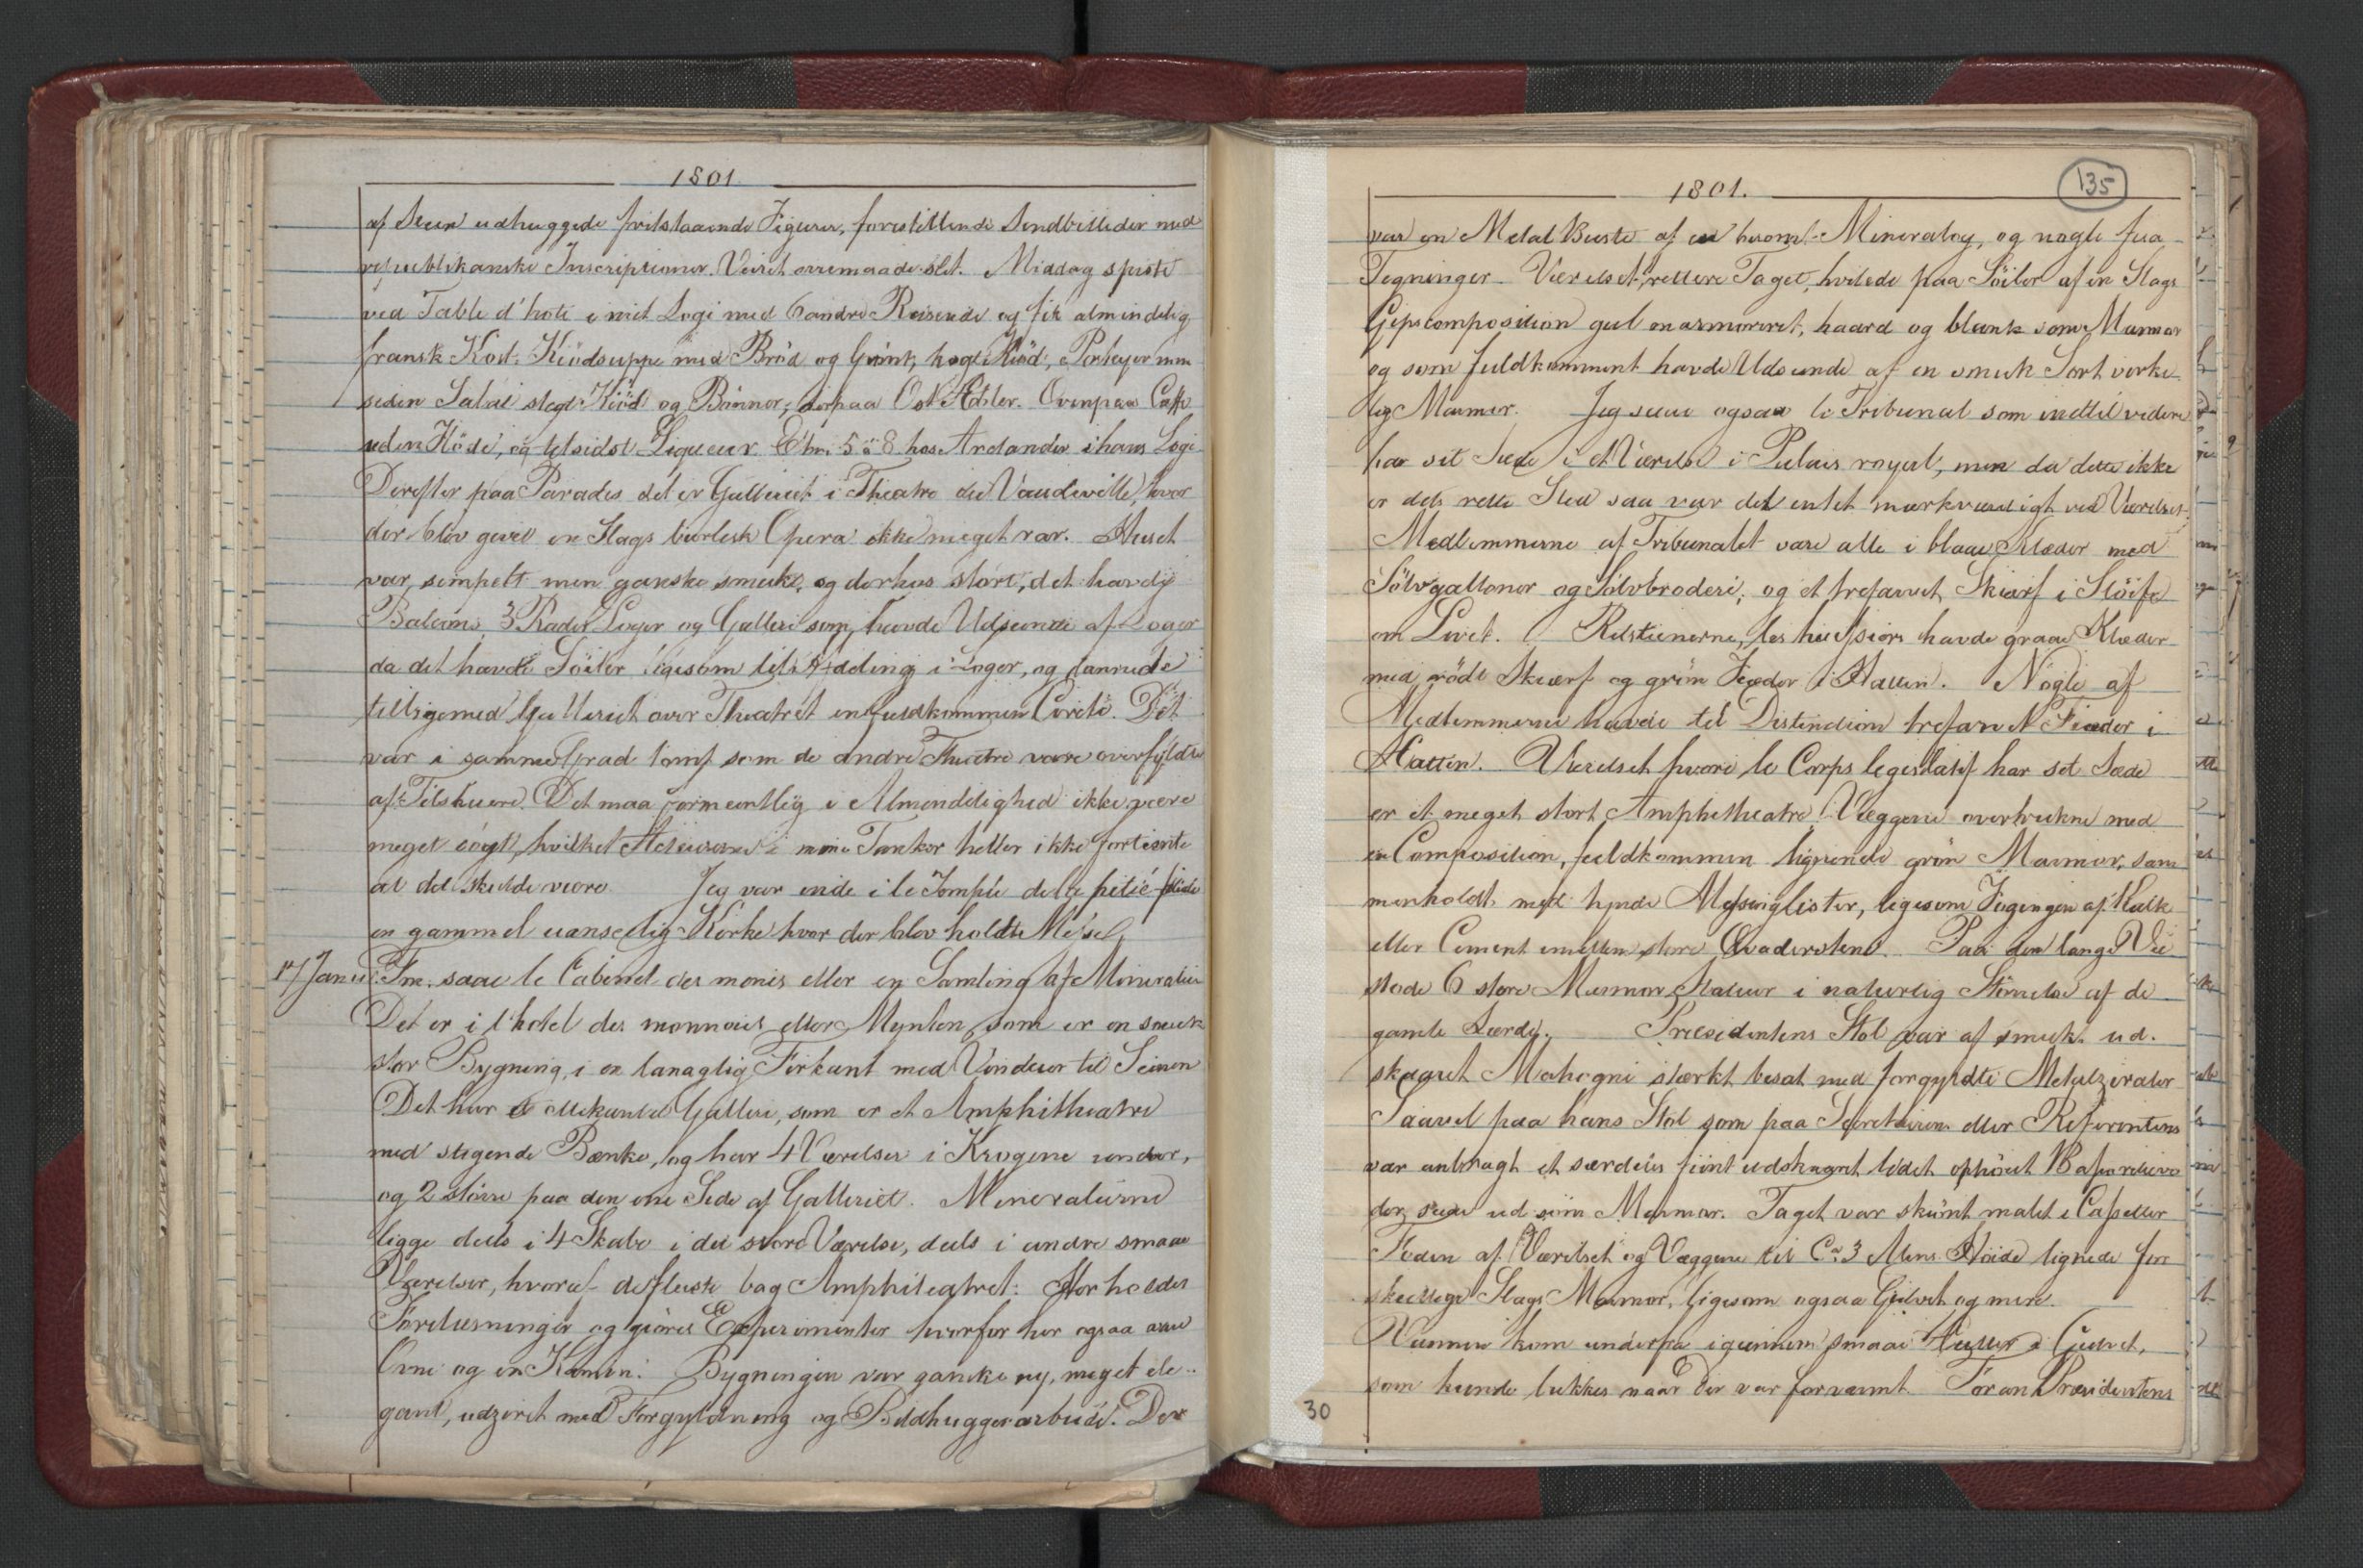 1801.
af Steen udhuggede fritstaaende Figurer, forestillende Sindbilleder med
republikanske Inscriptioner. Veiret overmaade slet. Middag spiste
ved Table d'hote i mit Logi med 6 andre Reisende og fik almindelig
fransk Kost: Kiödsuppe med Bröd og Grönt, kogt Kiöd, Posteyer
siden Salat stegt Kiöd og Bönner, derpaa Ost Æbler. Ovenpaa Caffe
uden Flöde, og tilsidst Liqueur. Etm. 5 à 8 hos Arctander i hans Logi
Derefter paa Paradis, det er Galleriet i Theatre du Vaudeville, hvor
der blev givet en Slags burlesk Opera ikke meget rar. Huset
var simpelt men ganske smukt, og derhos stort, det havde
Balcons, 3 Rader Loger og Galleri som havde Udseende af Loger
da det havde Söiler ligesom til Afdeling i Loger, og dannede
tilligemed Galleriet over Theatret en fuldkommen Circel. Det
var i samme Grad tomt som de andre Theatre vare overfyldte
af Tilskuere. Det maa formeentlig i Almindelighed ikke være
meget sögt, hvilket Acteurerne i mine Tanker heller ikke fortiente
at det skulde være Jeg var inde i le Temple de la pitié
en gammel uanselig Kirke hvor der blev holdt Messe.
17 Januar Fm. saae le Cabinet des mines eller en Samling af Mineralier
Det er i l'hotel des monnoies eller Mynten, som er en smuk
stor Bygning, i en lanaglig Firkant med Vinduer til Seinen
Det har et ottekantet Galleri, som er et Amphitheatre
med stigende Bænke, og har 4 Værelser i Krogene under,
og 2 större paa den ene Side af Galleriet. Mineralierne
ligge deels i 4 Skabe i det store Værelse, deels i andre smaae
Værelser, hvoraf de fleeste bag Amphiteatret. Her holdes
Forelæsninger og giöres Experimenter hvorfor her ogsaa
Ovne og en Kamin. Bygningen var ganske ny, meget ele-
gant, udziret med Forgyldning og Billedhuggerarbeide. Der
135
1801.
var en Metal Buste af en beromt Mineralog, og nogle faa
Tegninger. Værelset, rettere Taget, hvilede paa Söiler af en Slags
Gipscomposition gul marmoreret, haard og blank som Marmor
og som fuldkomment havde Udseende af en smuk Sort virke-
lig Marmor. Jeg saae ogsaa le Tribunat som indtil videre
har sit Sæde i et Værelse i Palais royal, men da dette ikke
er dets rette Sted saa var det intet mærkværdigt ved Værelset.
Medlemmerne af Tribunatet vare alle i blaae Klæder med
Sölvgalloner og Sölvbroderi, og et trefarvet Skiærf i Slöife
om Livet. Retstienerne, les huissiers havde graae Klæder
med rödt Skiærf og grön Fieder i Hatten. Nogle af
Medlemmerne havde til Distinction trefarvet Fieder i
Hatten. Værelset hvori le Corps legislatif har sit Sæde
er et meget stort Amphitheatre. Væggene overtrukne med
en Composition, fuldkommen lignende grön Marmor, sam
menholdt med tynde Messinglister, ligesom Fugningen af Kalk
eller Cement imellem store Qvaderstene. Paa den lange Væg
stode 6 store Marmor Statuer i naturlig Störrelse af de
gamle Lærde. Præsidentens Stol var af smukt ud-
skaaret Mahogni stærkt besat med forgyldte Metalzirater
Saavel paa hans Stol som paa Secretairens eller Referentens
var anbragt et særdeles fiint udskaaret lidet ophöiet Basrelieve
der saae ud som Marmor. Taget var skiönt malet i Casetter
Foden af Værelset og Væggene til Ca 3 Alens Höide lignede for
skiellige Slags Marmor, ligesom ogsaa Gulvet og mere.
Varmen kom underfra igiennem smaae Huller i Gulvet,
som kunde lukkes naar der var for varmt. Foran Præsidentens
30